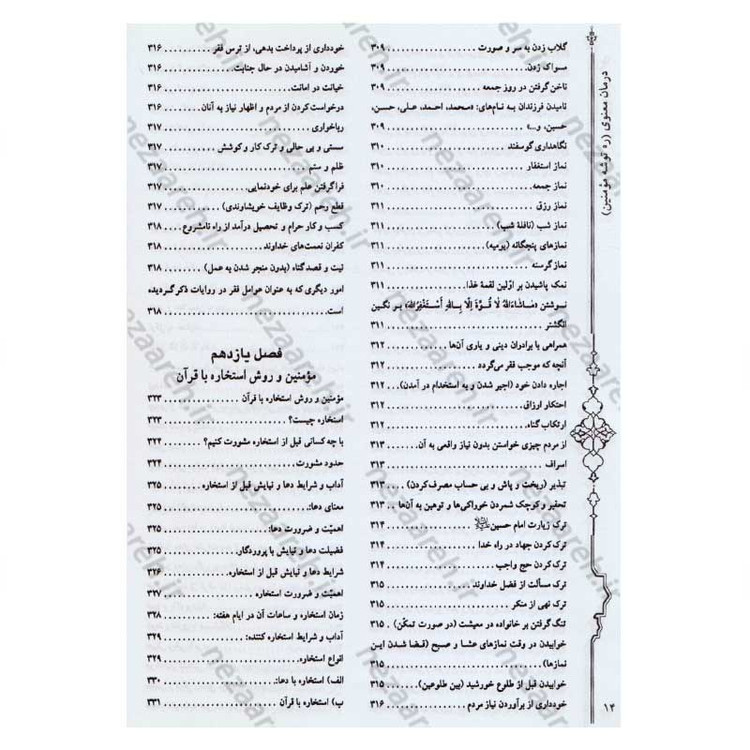 درمان معنوی (ره توشه مؤمنین)
گلاب زدن به سر و صورت ........ ۳۰۹
مسواک زدن ........ ۳۰۹
ناخن گرفتن در روز جمعه ........ ۳۰۹
نامیدن فرزندان به نام‌های: «محمد، احمد، علی، حسن،
حسین، و...» ........ ۳۰۹
نگاهداری گوسفند ........ ۳۱۰
نماز استغفار ........ ۳۱۰
نماز جمعه ........ ۳۱۰
نماز رزق ........ ۳۱۰
نماز شب (نافلهٔ شب) ........ ۳۱۱
نمازهای پنجگانه (یومیه) ........ ۳۱۱
نماز گرسنه ........ ۳۱۱
نمک پاشیدن بر اوّلین لقمهٔ غذا ........ ۳۱۱
نوشتن «مَاشَاءَاللهُ لَا قُوَّةَ إِلَّا بِاللهِ أَسْتَغْفِرُالله» بر نگین
انگشتر ........ ۳۱۱
همراهی با برادران دینی و یاری آن‌ها ........ ۳۱۲
آنچه که موجب فقر می‌گردد ........ ۳۱۲
اجاره دادن خود (اجیر شدن و به استخدام در آمدن) ... ۳۱۲
احتکار ارزاق ........ ۳۱۲
ارتکاب گناه ........ ۳۱۲
از مردم چیزی خواستن بدون نیاز واقعی به آن ........ ۳۱۳
اسراف ........ ۳۱۳
تبذیر (ریخت و پاش و بی حساب مصرف‌کردن) .... ۳۱۳
تحقیر و کوچک شمردن خوراکی‌ها و توهین به آن‌ها .. ۳۱۳
ترک زیارت امام حسین ........ ۳۱۴
ترک کردن جهاد در راه خدا ........ ۳۱۴
ترک کردن حج واجب ........ ۳۱۴
ترک مسألت از فضل خداوند ........ ۳۱۵
ترک نهی از منکر ........ ۳۱۵
تنگ گرفتن بر خانواده در معیشت (در صورت تمکّن) . ۳۱۵
خوابیدن در وقت نمازهای عشا و صبح (قضا شدن این
نمازها) ........ ۳۱۵
خوابیدن قبل از طلوع خورشید (بین طلوعین) ........ ۳۱۵
خودداری از برآوردن نیاز مردم ........ ۳۱۶
خودداری از پرداخت بدهی، از ترس فقر ........ ۳۱۶
خوردن و آشامیدن در حال جنابت ........ ۳۱۶
خیانت در امانت ........ ۳۱۶
درخواست کردن از مردم و اظهار نیاز به آنان ........ ۳۱۶
رباخواری ........ ۳۱۷
سستی و بی حالی و ترک کار و کوشش ........ ۳۱۷
ظلم و ستم ........ ۳۱۷
فرا گرفتن علم برای خودنمایی ........ ۳۱۷
قطع رحم (ترک وظایف خویشاوندی) ........ ۳۱۷
کسب و کار حرام و تحصیل درآمد از راه نامشروع .... ۳۱۸
کفران نعمت‌های خداوند ........ ۳۱۸
نیت و قصد گناه (بدون منجر شدن به عمل) ........ ۳۱۸
امور دیگری که به عنوان عوامل فقر در روایات ذکر گردیده
است ........ ۳۱۸
فصل یازدهم
مؤمنین و روش استخاره با قرآن
مؤمنین و روش استخاره با قرآن ........ ۳۲۳
استخاره چیست؟ ........ ۳۲۳
با چه کسانی قبل از استخاره مشورت کنیم؟ ........ ۳۲۴
حدود مشورت ........ ۳۲۴
آداب و شرایط دعا و نیایش قبل از استخاره ........ ۳۲۵
معنای دعا: ........ ۳۲۵
اهمیّت و ضرورت دعا: ........ ۳۲۵
فضیلت دعا و نیایش با پروردگار ........ ۳۲۵
شرایط دعا و نیایش قبل از استخاره ........ ۳۲۶
اهمیّت و ضرورت استخاره ........ ۳۲۷
زمان استخاره و ساعات آن در ایام هفته: ........ ۳۲۸
آداب و شرایط استخاره کننده: ........ ۳۲۹
انواع استخاره ........ ۳۲۹
الف) استخاره با دعا: ........ ۳۳۰
ب) استخاره با قرآن ........ ۳۳۱
۱۴
nezaareh.ir